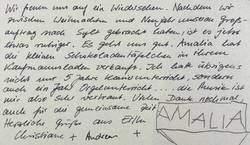 Wir freuen uns auf ein Wiedersehen. Nachdem wir
zwischen Weihnachten und Neujahr unseren Groß-
auftrag nach Sylt gebracht haben, ist es jetzt
etwas ruhiger. Es geht uns gut. Amalia hat
die kleinen Schokoladentäfelchen in ihrem
Kaufmannsladen verkauft. Ich hatte übrigens
nicht nur 5 Jahre Klavierunterricht, sondern
auch ein Jahr Orgelunterricht... die Musik ist
mir also sehr vertraut. Vielen Dank nochmal,
auch für die gemeinsame Zeit
Herzliche Grüße aus
Christiane + Andreas +
AMALIA